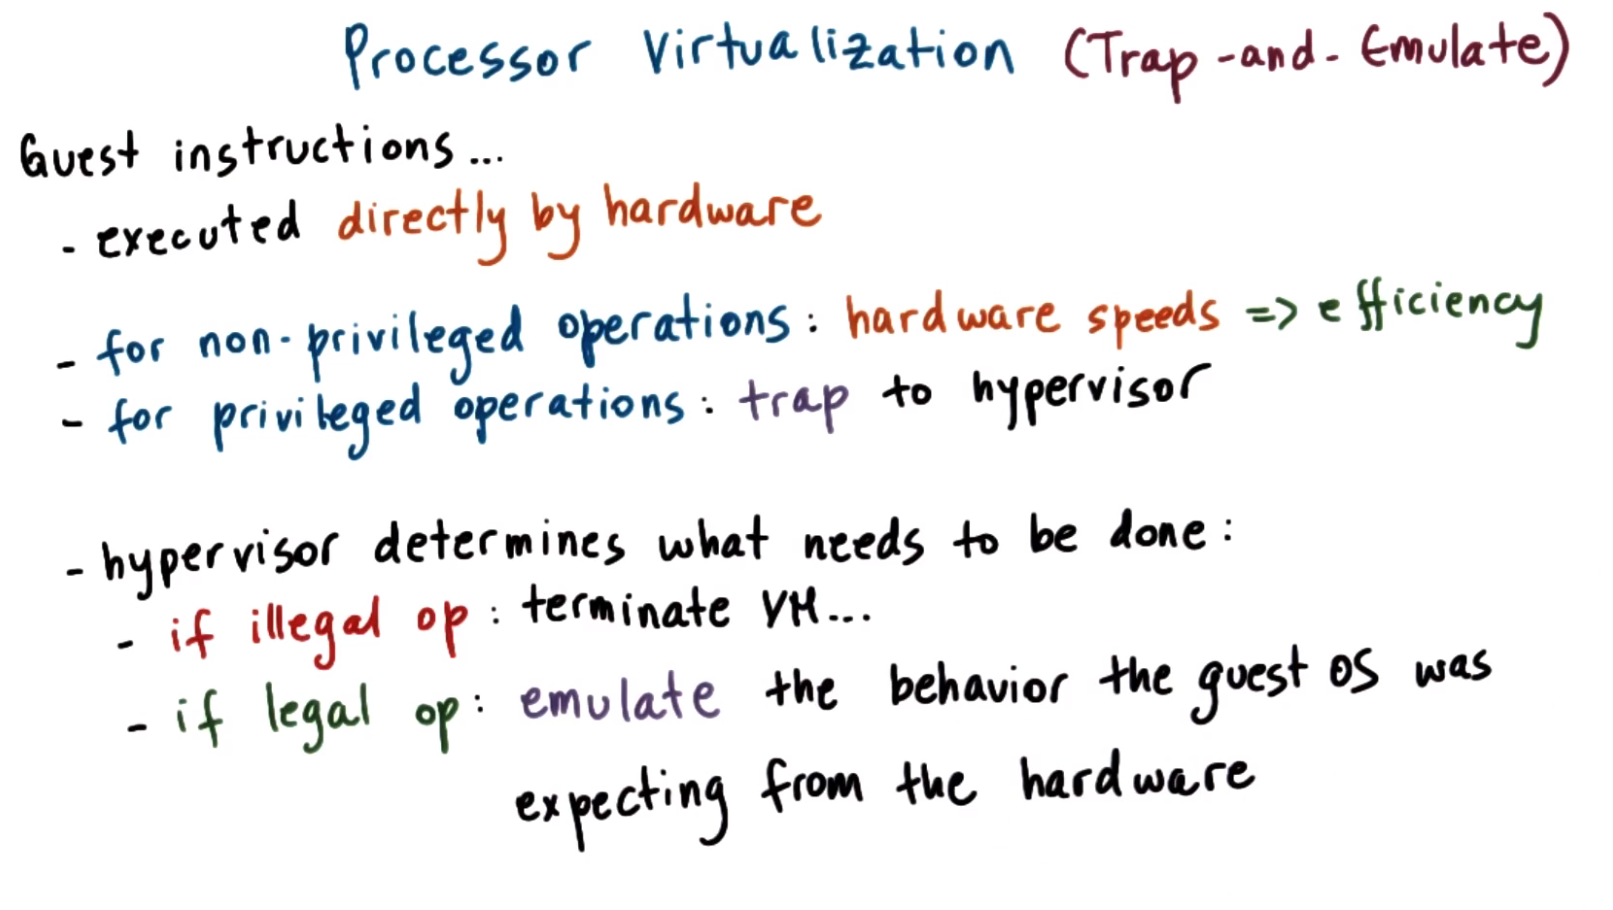 Processor Virtualization (Trap-and-Emulate)
Guest instructions...
- executed directly by hardware
- for non-privileged operations: hardware speeds => efficiency
- for privileged operations: trap to hypervisor
- hypervisor determines what needs to be done:
- if illegal op: terminate VM...
- if legal op: emulate the behavior the guest OS was
expecting from the hardware